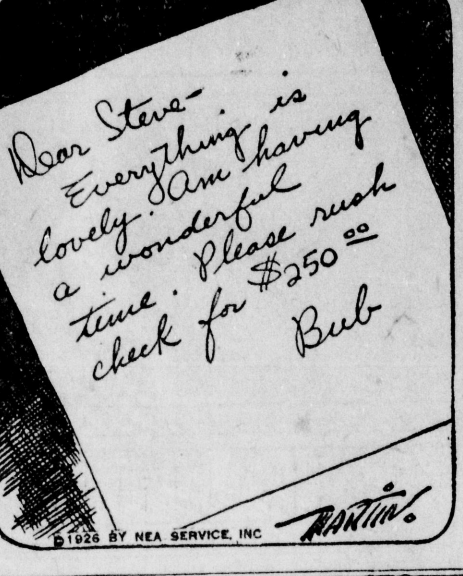 Dear Steve-
Everything is
lovely. Am having
a wonderful
time. Please rush
check for $250 00
Bub
©1926 BY NEA SERVICE, INC
MARTIN.